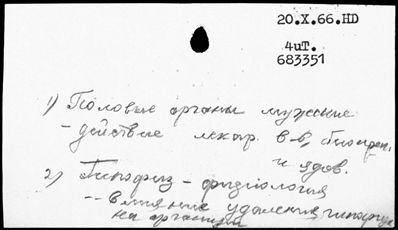 20.X.66.HD
4иТ.
683351
1) Половые органы мужские
- действие лекар. в-в, биопреп.
и ядов.
2) Гипофиз - физиология
-- влияние удаления гипофиза
на организм